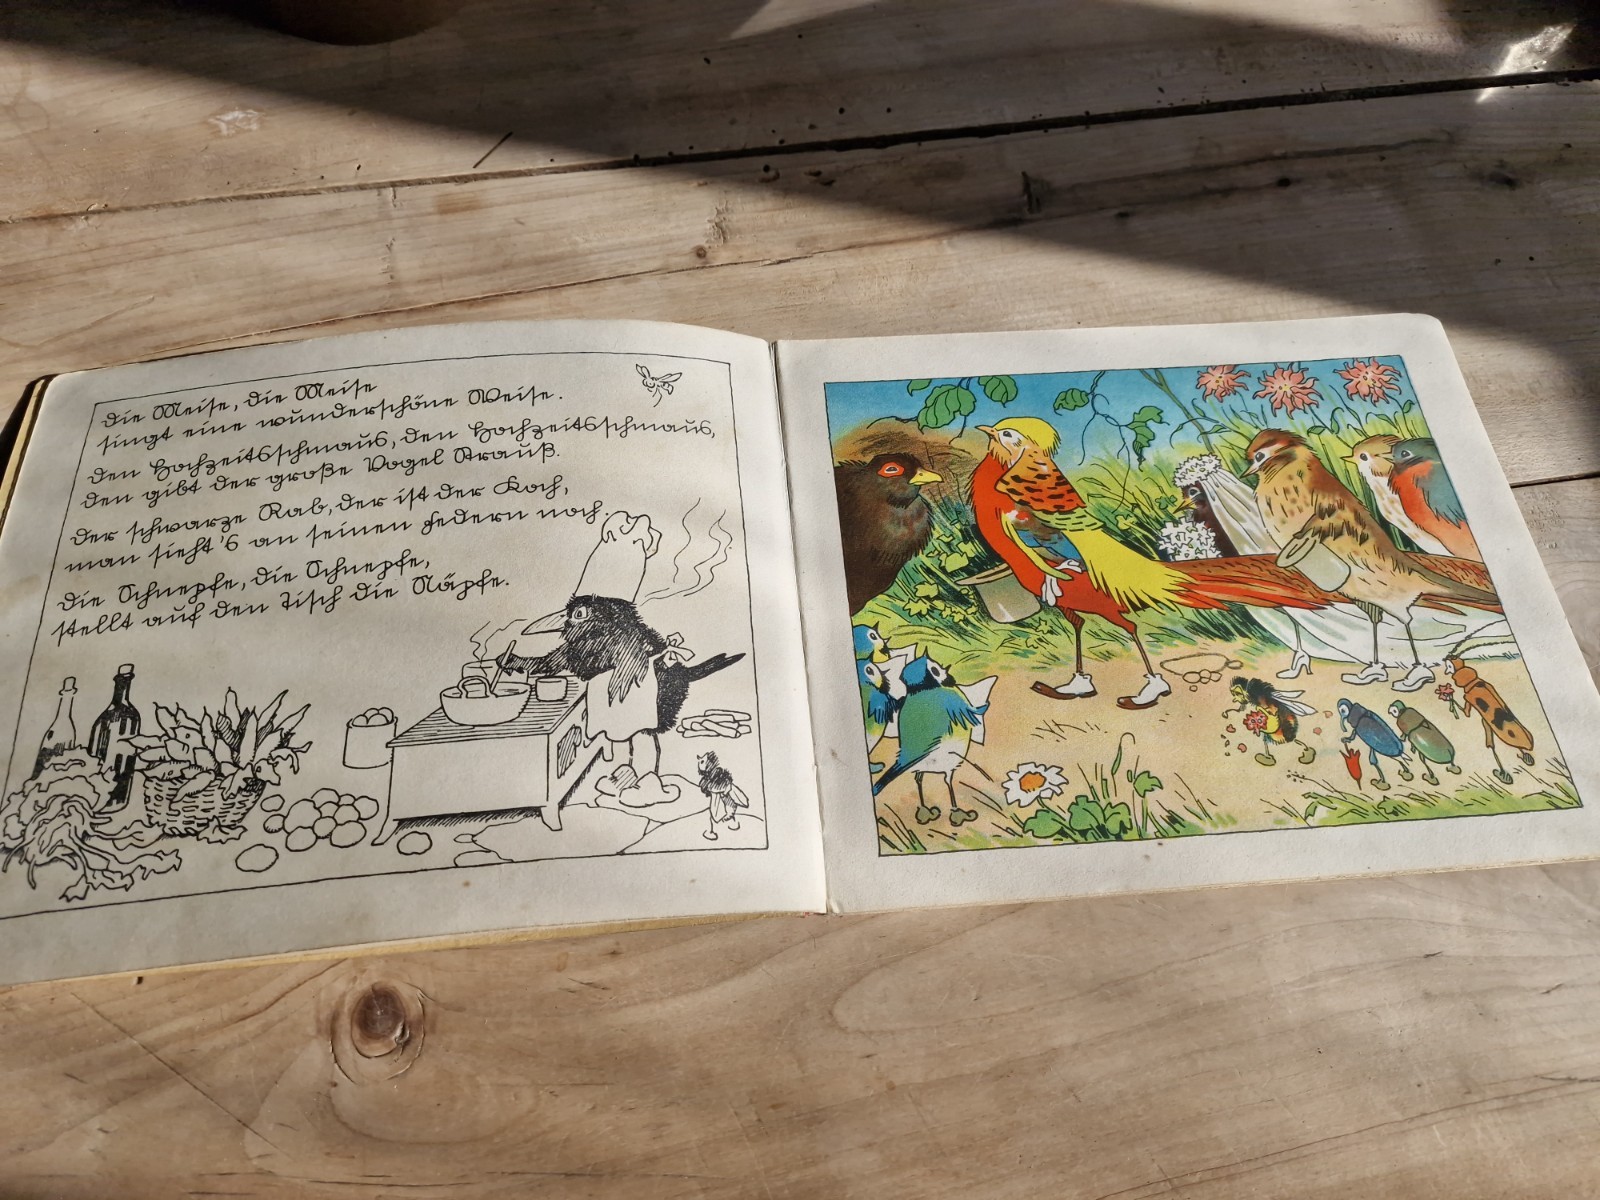 Die Meise, die Meise
singt eine wunderschöne Weise.
Den Hochzeitsschmaus, den Hochzeitsschmaus,
den gibt der große Vogel Strauß.
Der schwarze Rab, der ist der Koch,
man sieht's an seinen Federn noch.
Die Schnepfe, die Schnepfe,
stellt auf den Tisch die Näpfe.